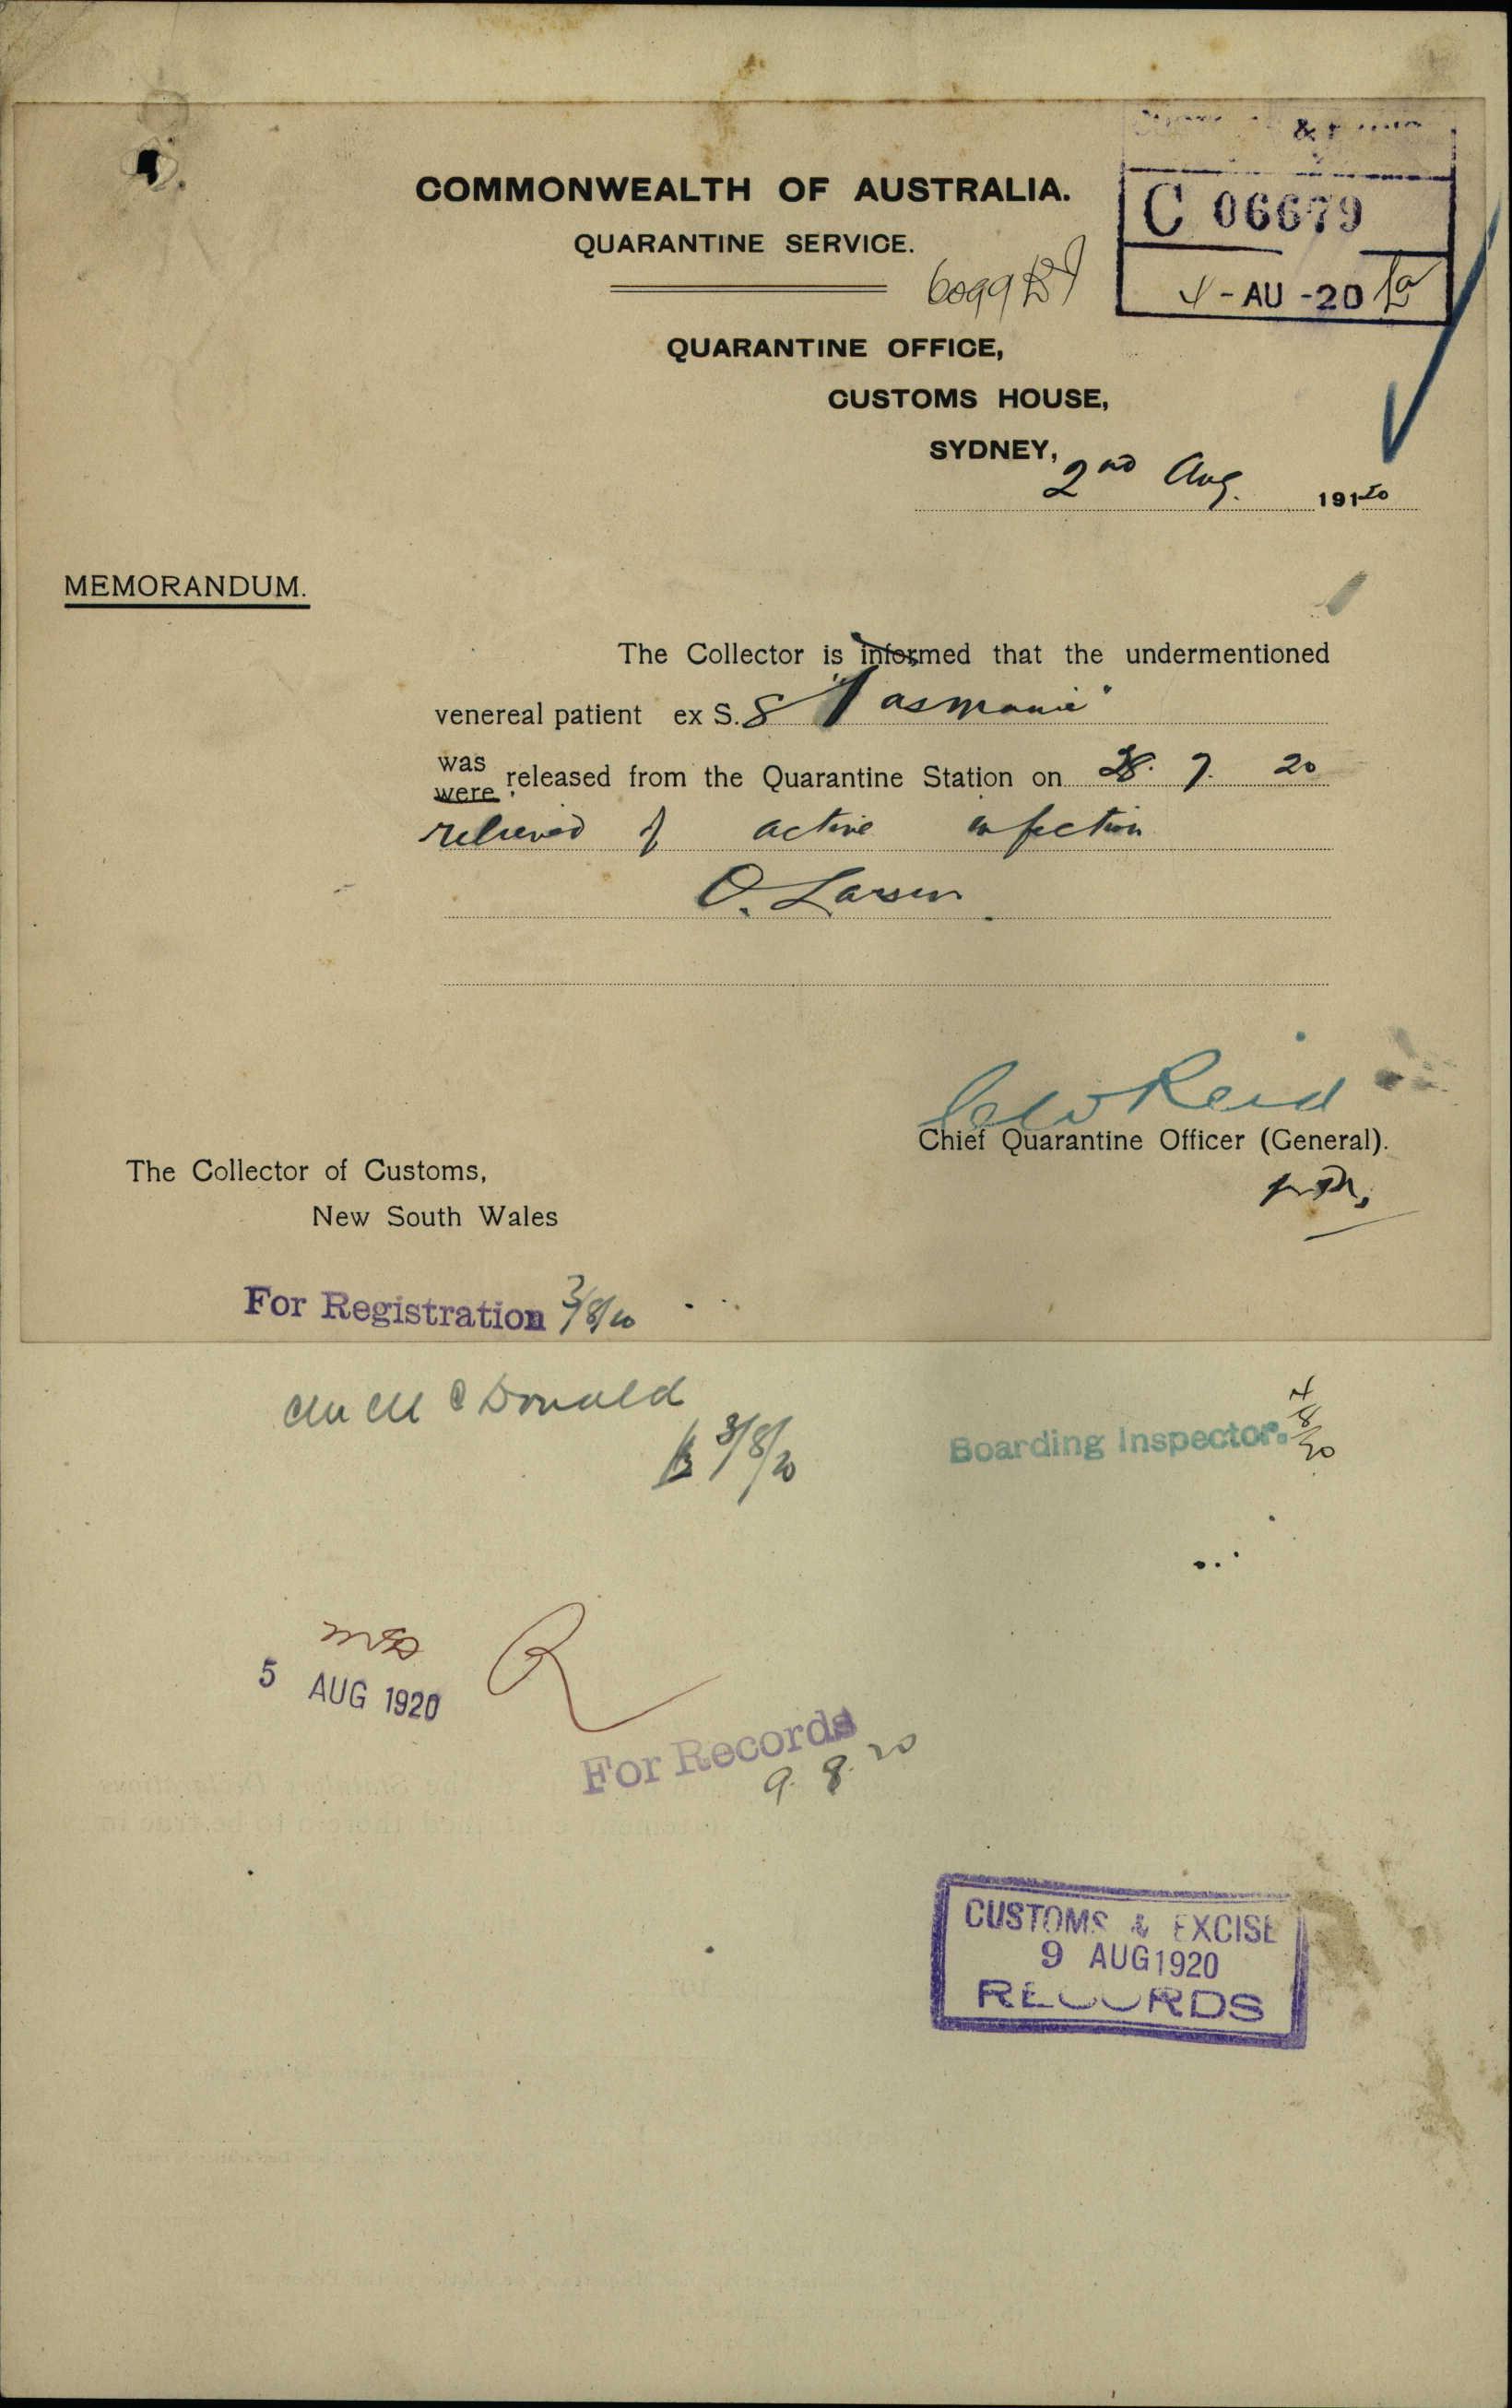 C 06679
4 - AU - 20
COMMONWEALTH OF AUSTRALIA.
QUARANTINE SERVICE.
QUARANTINE OFFICE,
CUSTOMS HOUSE,
SYDNEY, 2nd Aug. 19120
MEMORANDUM.
The Collector is informed that the undermentioned
venereal patient ex S.S "Tasmania"
was
were released from the Quarantine Station on 28. 7. 20
relieved of active infection
O. Larsen
Reid
Chief Quarantine Officer (General).
The Collector of Customs,
New South Wales
For Registration 3/8/20
McDonald
3/8/20
Boarding Inspector. 4/8/20
5 AUG 1920
For Records
9. 8. 20
CUSTOMS & EXCISE
9 AUG 1920
RECORDS